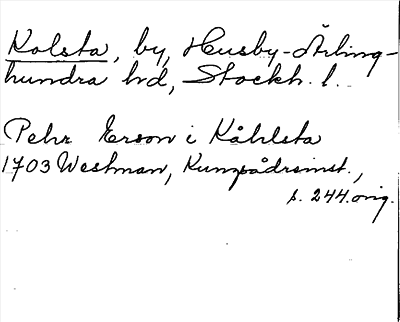 Kolsta, by, Husby-Ärling-
hundra hd, Stockh. l.
Pehr Erson i Kåhlsta
1703 Westman, Kungsådreinst.,
s. 244. orig.